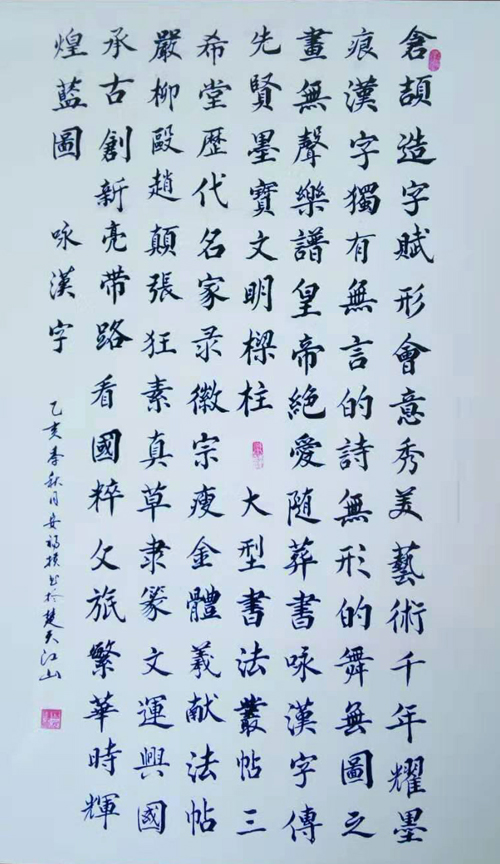 倉頡造字賦形會意秀美藝術千年耀墨
痕漢字獨有無言的詩無形的舞無圖之
畫無聲樂譜皇帝絕愛随葬書咏漢字傳
先賢墨寶文明樑柱 大型書法叢帖三
希堂歷代名家录徽宗瘦金體羲献法帖
嚴柳毆趙顛張狂素真草隶篆文運興國
承古創新亮带路看國粹文旅繁華時輝
煌藍圖 咏漢字
乙亥季秋月安福撲书於楚天江山